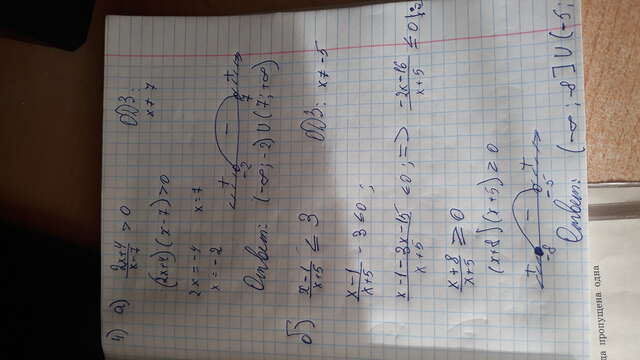 4) а) 2x+4/x-7 > 0 ОДЗ:
x ≠ 7
(2x+4)(x-7)>0
2x = -4 x=7
x = -2
+ - +
-2 7
Ответ: (-∞; -2) ∪ (7; +∞)
б) x-1/x+5 ≤ 3 ОДЗ: x ≠ -5
x-1/x+5 - 3 ≤ 0 ;
x-1-3x-15/x+5 ≤ 0 ; => -2x-16/x+5 ≤ 0
x+8/x+5 ≥ 0
(x+8)(x+5) ≥ 0
+ - +
-8 -5
Ответ: (-∞; -8] ∪ (-5;
да пропущена одна